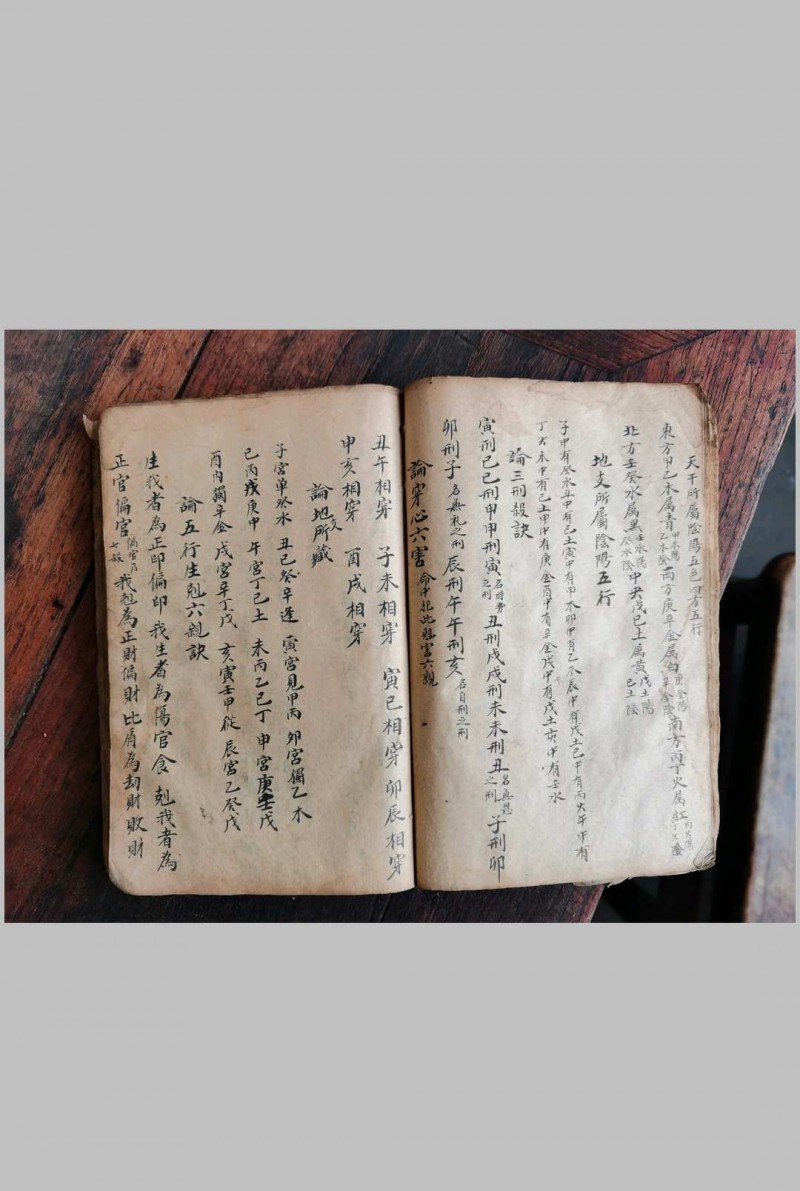 天干所屬陰陽五色四方五行
東方甲乙木属青甲木陽乙木陰西方庚辛金属白庚金陽辛金陰南方丙丁火属紅丙火陽丁火陰
北方壬癸水属黑壬水陽癸水陰中央戊己土属黄戊土陽己土陰
地支所屬陰陽五行
子中有癸水丑中有己土寅中有甲木卯中有乙木辰中有戊土巳中有丙火午中有
丁火未中有己土申中有庚金酉中有辛金戌中有戊土亥中有壬水
論三刑殺訣
寅刑巳巳刑申申刑寅名時势之刑丑刑戌戌刑未未刑丑名無恩之刑子刑卯
卯刑子名無礼之刑辰刑午午刑亥名自刑之刑
論穿心六害命中犯此尅害六親
丑午相穿 子未相穿 寅巳相穿 卯辰相穿
申亥相穿 酉戌相穿
論地支所藏
子宮单癸水 丑己癸辛逢 寅宮見甲丙 卯宮獨乙木
巳丙戊庚申 午宮丁己土 未丙乙己丁 申宮庚壬戊
酉内獨辛金 戌宮辛丁戊 亥寅壬甲從 辰宮乙癸戊
論五行生剋六親訣
生我者為正印偏印 我生者為傷官食 剋我者為
正官偏官偏官乃七殺 我剋為正財偏財 比肩為刼財敗財